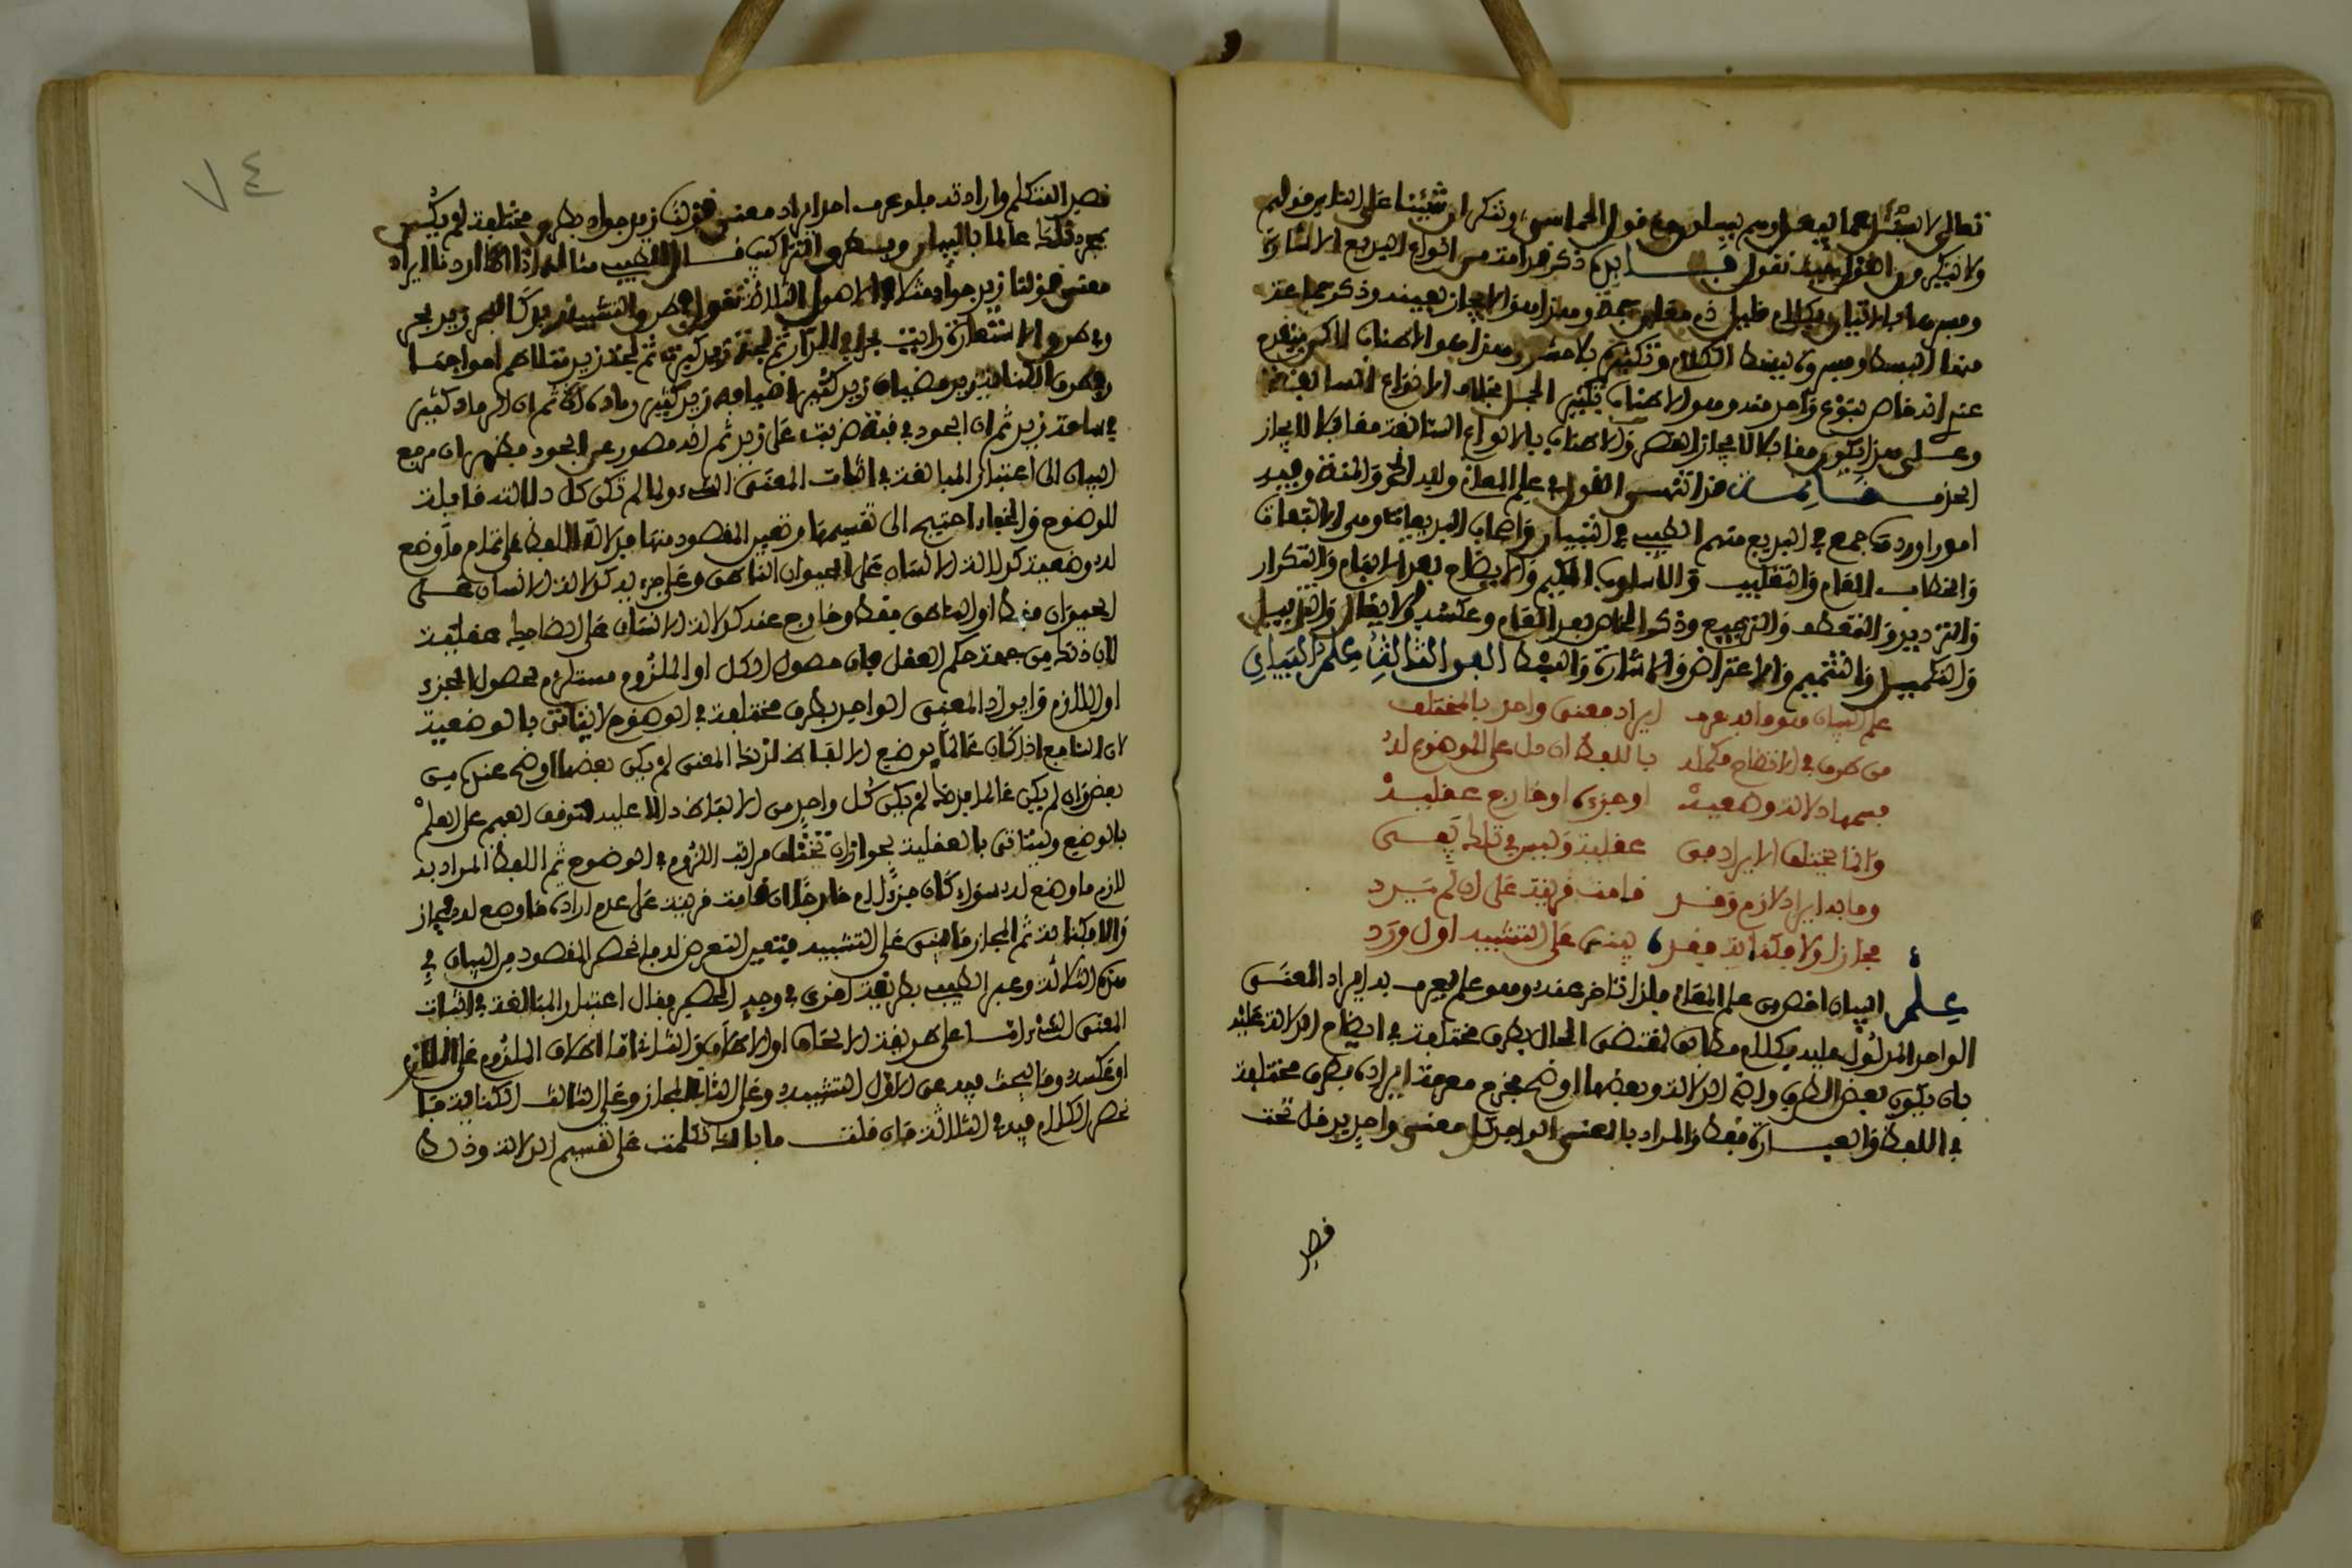 تعالى لا يسئل عما يفعل وهم يسئلون مع قول الحماسي وننكر ان شئنا على الناس قولهم
ولا ينكرون القول حين نقول ذكر قدامة من انواع البديع الاشارة
وفسرها بالاتيان بكلام قليل ذي معان جمة وهذا هو الايجاز بعينه وذكر جماعة
منها البسط وفسروه ببسط الكلام وتكثيره بلا حشو وهذا هو الاطناب لاكن يتقدم
عنه انه خاص بنوع واحد منه وهو الاطناب بتكثير الجمل بخلاف الانواع السابقة
وعلى هذا يكون مقابلا لايجاز القصر والاطناب بالانواع السابقة مقابلا لايجاز
الحذف خاتمة قد انتهى القول في علم المعاني ولله الحمد والمنة وفيه
امور اوردت جمع في البديع منهم الطيبي في التبيان واصحاب البديعيات وهي الالتفات
والخطاب العام والتغليب والاسلوب الحكيم والايضاح بعد الابهام والتكرار
والترديد والتعطف والترجيع وذكر الخاص بعد العام وعكسه والايغال والتذييل
والتكميل والتتميم والاعتراض والاشارة والبسط الفن الثاني علم البيان
علم البيان هو ما به عرف ايراد معنى واحد بالمختلف
من طرق في الاتضاح مكمله باللفظ ان دل على الموضوع له
فسمها دلالة وضعية او جزءه او خارج عقلية
وانما يختلف الايراد في عقلية وليس في تلك يفي
وما به ايراد لازم وقد قامت قرينة على ان لم يرد
مجاز او لا فكناية فقد يبنى على التشبيه اول ورد
علم البيان اخص من علم المعاني فلذا تاخر عنه وهو علم يعرف به ايراد المعنى
الواحد المدلول عليه بكلام مطابق لمقتضى الحال بطرق مختلفة في ايضاح الدلالة عليه
بان يكون بعض الطرق واضح الدلالة وبعضها اوضح فخرج معرفة ايراده بطرق مختلفة
في اللفظ والعبارة فقط والمراد بالمعنى الواحد كل معنى واحد يدخل تحت
قصد
٧٤
قصد المتكلم وارادته فلو عرف احد ايراد معنى قولنا زيد جواد بطرق مختلفة لم يكن
بمجرد ذلك عالما بالبيان وبسطه التراكيب قال الطيبي مثاله اذا اردنا ايراد
معنى قولنا زيد جواد مثلا في الاصول الثلاثة نقول في طرق التشبيه زيد كالبحر زيد بحر
وفي طرق الاستعارة رايت بحرا في الدار ثم لجة زيد كثيرة ثم لجة زيد متلاطم امواجها
وفي طرق الكناية زيد مضياف زيد كثير اضيافه زيد كثير رماده ثم ان الرماد كثير
في ساحة زيد ثم ان الجود في قبة ضربت على زيد ثم انه مصور من الجود فظهر ان مرجع
البيان الى اعتبار المبالغة في اثبات المعنى للشيء ولما لم تكن كل دلالة قابلة
للوضوح والخفاء احتيج الى تقسيمها وتعيين المقصود منها فدلالة اللفظ على تمام ما وضع
له وضعية كدلالة الانسان على الحيوان الناطق وعلى جزءه كدلالة الانسان على
الحيوان فقط او الناطق فقط وخارج عنه كدلالة الانسان على الضاحك عقلية
لان ذلك من جهة حكم العقل بان حصول الكل او الملزوم مستلزم لحصول الجزء
او اللازم وايراد المعنى الواحد بطرق مختلفة في الوضوح لا يتاتى بالوضعية
لان السامع اذا كان عالما بوضع الالفاظ لذلك المعنى لم يكن بعضها اوضح عنده من
بعض وان لم يكن عالما بذلك لم يكن كل واحد من الالفاظ دالا عليه لتوقف الفهم على العلم
بالوضع ويتاتى بالعقلية لجواز ان تختلف مراتب اللزوم في الوضوح ثم اللفظ المراد به
لازم ما وضع له سواء كان جزءا ام خارجا ان قامت قرينة على عدم ارادة ما وضع له فمجاز
والا فكناية ثم المجاز ما يبنى على التشبيه فتعين التعرض له فانحصر المقصود من البيان في
هذه الثلاثة وعبر الطيبي بطريقة اخرى في وجه الحصر فقال اعتبار المبالغة في اثبات
المعنى للشيء اما على طريقة الالحاق او الاطلاق والثاني اما اطلاق الملزوم على اللازم
او عكسه وما يبحث فيه عن الاول التشبيه وعن الثاني المجاز وعن الثالث الكناية فا
نحصر الكلام فيه في الثلاثة فان قلت ما بالك تكلمت على تقسيم الدلالة وذلك